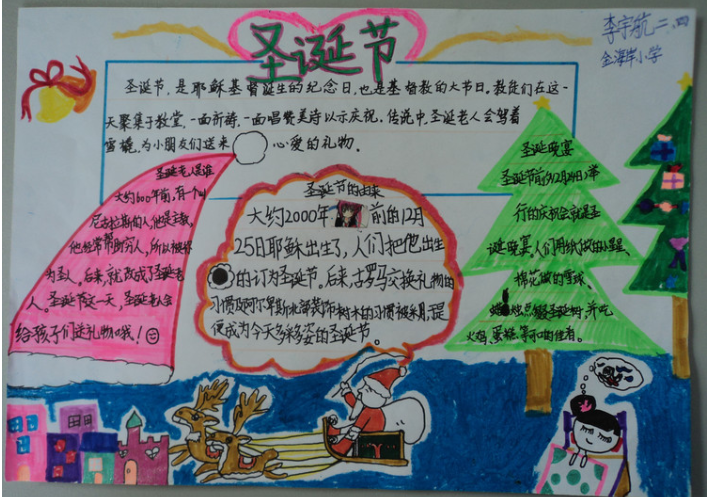 圣诞节
李宇航二、四
金海岸小学
圣诞节，是耶稣基督诞生的纪念日，也是基督教的大节日。教徒们在这一
天聚集于教堂，一面祈祷，一面唱赞美诗以示庆祝。传说中，圣诞老人会驾着
雪橇，为小朋友们送来心爱的礼物。
圣诞老人是谁
大约1600年前，有一个叫
尼古拉斯的人，他是主教，
他经常帮助穷人，所以被称
为圣人。后来，就改成了圣诞老
人。圣诞节这一天，圣诞老人会
给孩子们送礼物哦！
圣诞节的由来
大约2000年前的12月
25日耶稣出生了，人们把他出生
的订为圣诞节。后来，古罗马交换礼物的
习惯及阿尔卑斯北部装饰树木的习惯被采用，促
便成为今天多采多姿的圣诞节。
圣诞晚宴
圣诞节前夕12月24日举
行的庆祝会就是圣
诞晚宴，人们用纸做的小星星、
棉花做的雪球、
蜡烛点缀圣诞树，并吃
火鸡、蛋糕等